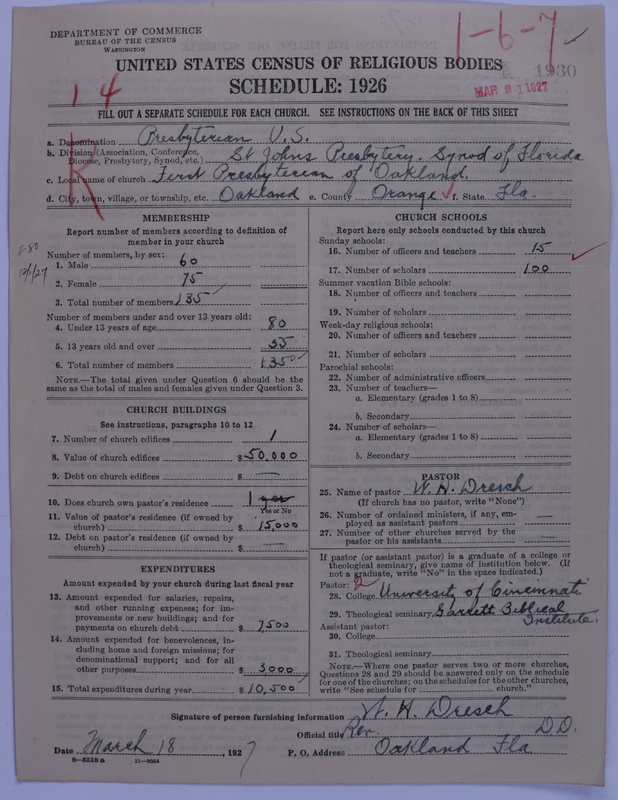 DEPARTMENT OF COMMERCE
BUREAU OF THE CENSUS
WASHINGTON
1-6-7 ✓
1930
MAR 21 1927
UNITED STATES CENSUS OF RELIGIOUS BODIES
SCHEDULE: 1926
14
FILL OUT A SEPARATE SCHEDULE FOR EACH CHURCH. SEE INSTRUCTIONS ON THE BACK OF THIS SHEET
K
a. Denomination Presbyterian U.S.
b. Division (Association, Conference, Diocese, Presbytery, Synod, etc.) St Johns Presbytery. Synod of Florida
c. Local name of church First Presbyterian of Oakland.
d. City, town, village, or township, etc. Oakland e. County Orange ✓ f. State Fla.
MEMBERSHIP
Report number of members according to definition of
member in your church
Number of members, by sex:
1. Male 60
2. Female 75
3. Total number of members 135 ✓
Number of members under and over 13 years old:
4. Under 13 years of age 80
5. 13 years old and over 55
6. Total number of members 135 ✓
NOTE.—The total given under Question 6 should be the
same as the total of males and females given under Question 3.
12/1/27
CHURCH BUILDINGS
See instructions, paragraphs 10 to 12
7. Number of church edifices 1
8. Value of church edifices $50,000
9. Debt on church edifices $ —
10. Does church own pastor's residence 1 yes
Yes or No
11. Value of pastor's residence (if owned by
church) $ 15,000
12. Debt on pastor's residence (if owned by
church) $ —
EXPENDITURES
Amount expended by your church during last fiscal year
13. Amount expended for salaries, repairs,
and other running expenses; for im-
provements or new buildings; and for
payments on church debt $ 7,500
14. Amount expended for benevolences, in-
cluding home and foreign missions; for
denominational support; and for all
other purposes $ 3,000
15. Total expenditures during year $ 10,500 ✓
CHURCH SCHOOLS
Report here only schools conducted by this church
Sunday schools:
16. Number of officers and teachers 15 ✓
17. Number of scholars 100
Summer vacation Bible schools:
18. Number of officers and teachers
19. Number of scholars
Week-day religious schools:
20. Number of officers and teachers
21. Number of scholars
Parochial schools:
22. Number of administrative officers
23. Number of teachers—
a. Elementary (grades 1 to 8)
b. Secondary
24. Number of scholars—
a. Elementary (grades 1 to 8)
b. Secondary
PASTOR
25. Name of pastor W. H. Dresch
(If church has no pastor, write "None")
26. Number of ordained ministers, if any, em-
ployed as assistant pastors —
27. Number of other churches served by the
pastor or his assistants —
If pastor (or assistant pastor) is a graduate of a college or
theological seminary, give name of institution below. (If
not a graduate, write "No" in the space indicated.)
Pastor: 2
28. College University of Cincinnati
29. Theological seminary Garrett Biblical Institute.
Assistant pastor:
30. College
31. Theological seminary
NOTE.—Where one pastor serves two or more churches,
Questions 28 and 29 should be answered only on the schedule
for one of the churches; on the schedules for the other churches,
write "See schedule for church."
Signature of person furnishing information W. H. Dresch
Official title Rev. D.D.
Date March 18, 1927 P. O. Address Oakland Fla
8—5518a 11—9064